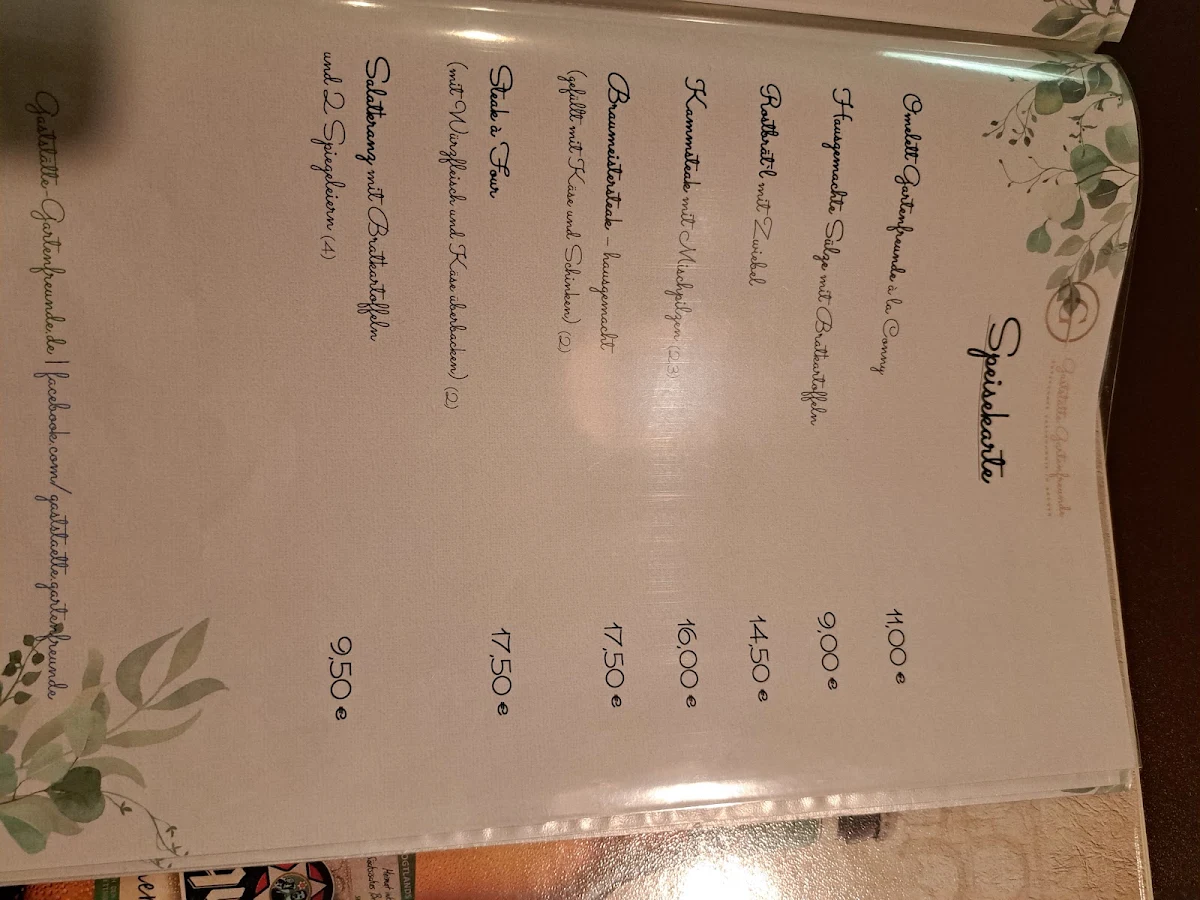 Gaststätte Gartenfreunde
Speisekarte
Omelett Gartenfreunde à la Conny 11,00 €
Hausgemachte Sülze mit Bratkartoffeln 9,00 €
Rostbrät'l mit Zwiebel 14,50 €
Kammsteak mit Mischpilzen (2,3) 16,00 €
Braumeistersteak - hausgemacht 17,50 €
(gefüllt mit Käse und Schinken) (2)
Steak à Four 17,50 €
(mit Würzfleisch und Käse überbacken) (2)
Salatkranz mit Bratkartoffeln
und 2 Spiegeleiern (4) 9,50 €
Gaststätte-Gartenfreunde.de | facebook.com/gaststaette.gartenfreunde